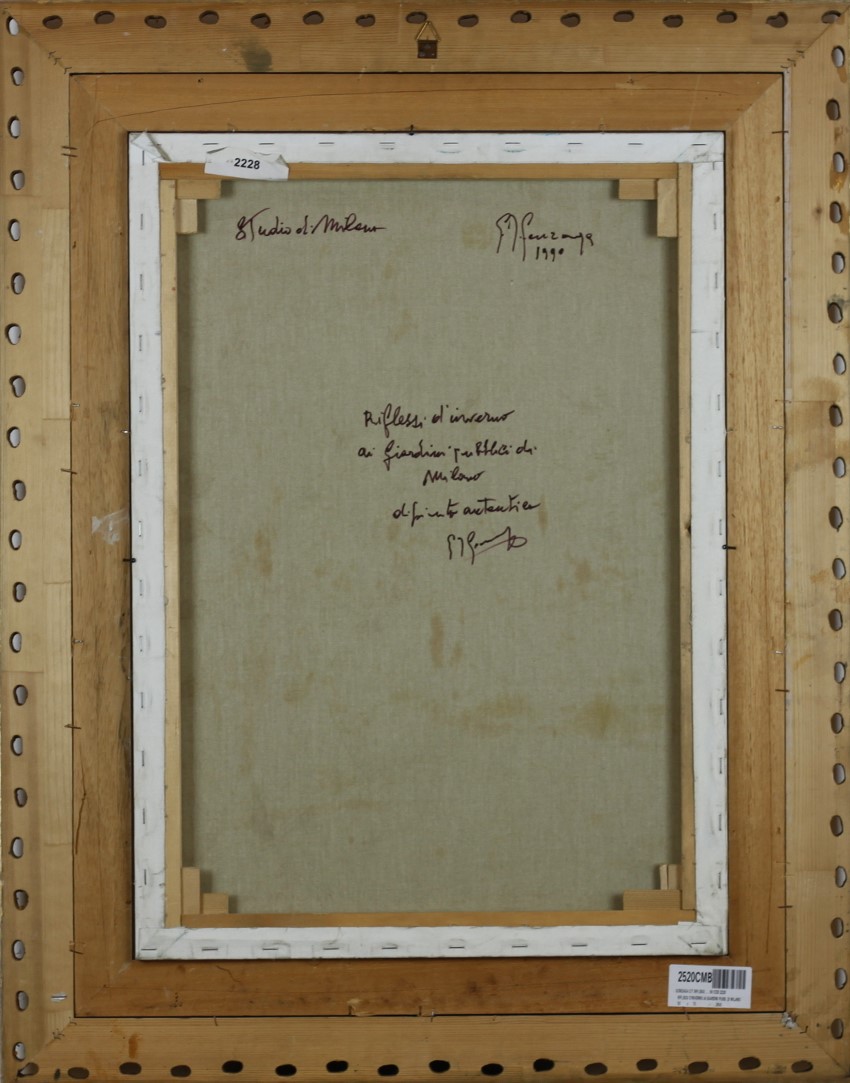 2228
Studio di Milano
Gonzaga
1990
Riflessi d'inverno
ai Giardini pubblici di
Milano
dipinto autentico
2520CMB